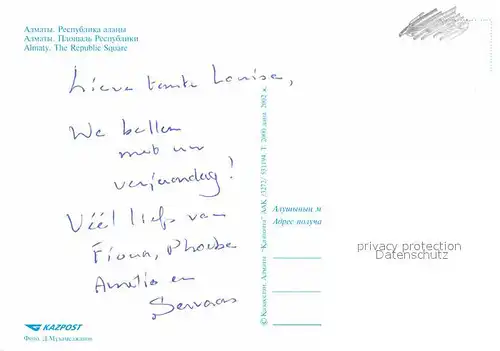 Алматы. Республика алаңы
Алматы. Площадь Республики
Almaty. The Republic Square
Lieve tante Louise,
We bellen
met uw
verjaardag!
Véél liefs van
Fiona, Phoebe
Amelia en
Servaas
© Казпочта, Алматы "Қазпошта" ААҚ /3272/ 551194. Т. 2000 дана. 2002 ж.
Алушының м
Адрес получа
privacy protection
Datenschutz
KAZPOST
Фото. Д.Мұхамеджанов